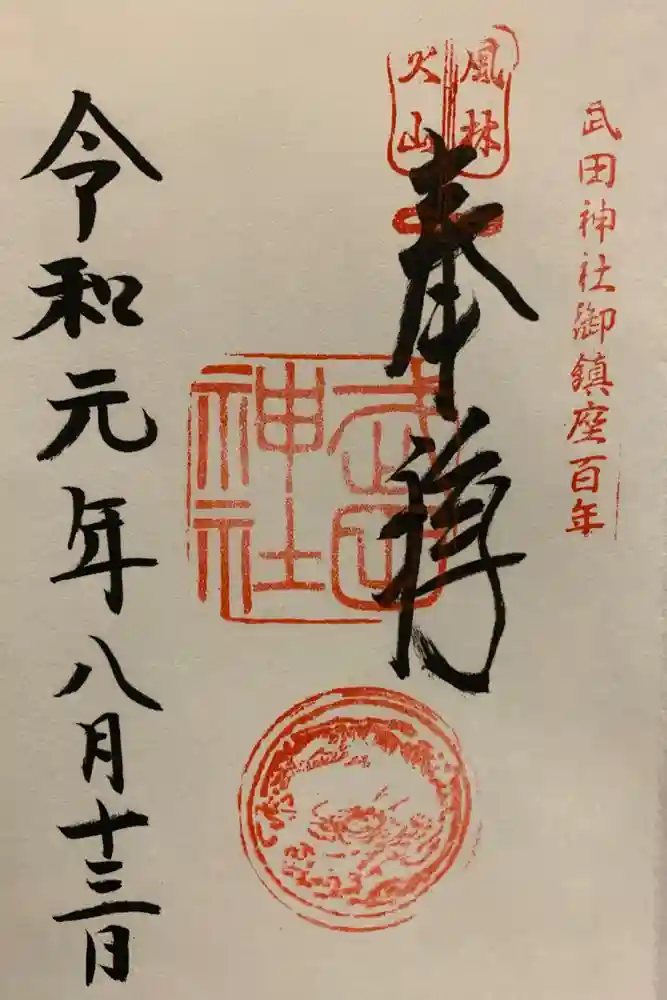 武田神社御鎮座百年
風林
火山
奉拝
武田
神社
令和元年八月十三日